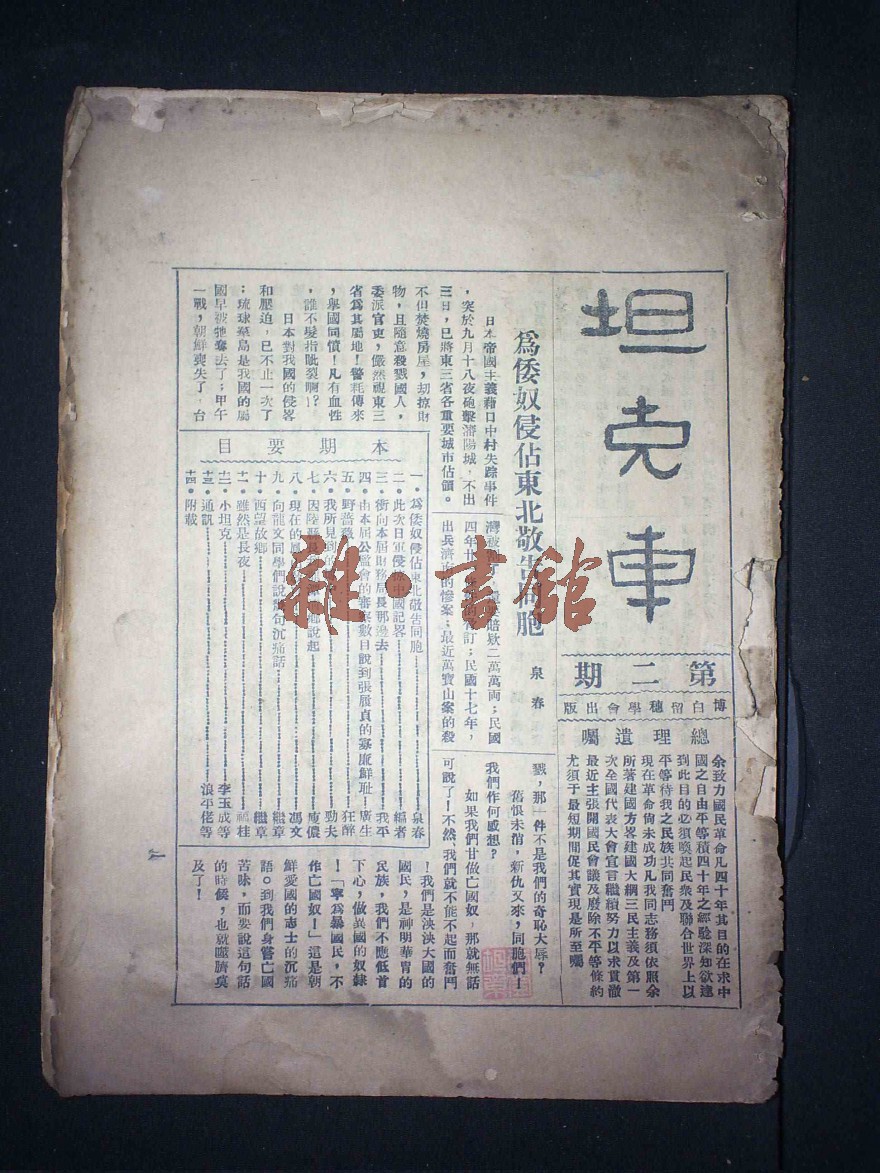 坦克車
第二期
博白留穗學會出版
總理遺囑
余致力國民革命凡四十年其目的在求中
國之自由平等積四十年之經驗深知欲達
到此目的必須喚起民衆及聯合世界上以
平等待我之民族共同奮鬥
現在革命尚未成功凡我同志務須依照余
所著建國方畧建國大綱三民主義及第一
次全國代表大會宣言繼續努力以求貫澈
最近主張開國民會議及廢除不平等條約
尤須于最短期間促其實現是所至囑
爲倭奴侵佔東北敬告同胞
泉春
日本帝國主義藉口中村失踪事件
，突於九月十八夜砲擊瀋陽城，不出
三日，已將東三省各重要城市佔領。
不但焚燒房屋，刧掠財
物，且隨意殺戮國人，
委派官吏，儼然視東三
省爲其屬地！警耗傳來
，舉國同憤！凡有血性
，誰不髮指眦裂啊！？
日本對我國的侵畧
和壓迫，已不止一次了
；琉球羣島是我國的屬
國早被牠奪去了；甲午
一戰，朝鮮喪失了，台
灣被
賠欵二萬萬両；民國
四年廿
訂；民國十七年，
出兵濟南的慘案；最近萬寶山案的殺
戮，那一件不是我們的奇恥大辱？
舊恨未消，新仇又來，同胞們！
我們作何感想？
如果我們甘做亡國奴，那就無話
可說了！不然，我們就不能不起而奮鬥
！我們是泱泱大國的
國民，是神明華胄的
民族，我們不應低首
下心，做異國的奴隸
！「寧爲暴國民，不
作亡國奴！」這是朝
鮮愛國的志士的沉痛
語。到我們身嘗亡國
苦味，而要說這句話
的時候，也就噬臍莫
及了！
本期要目
一．爲倭奴侵佔東北敬告同胞 泉春
二．此次日軍侵 中國記畧 編者
三．衝向本屆財務局長那邊去 我平
四．由本屆公 會的審察數目說到張履貞的寡廉鮮耻 廣生
五．野薔薇 狂醉
六．我所見到 勁夫
七．因陸縣長 說起 庾儂
八．現在的 馮文
九．向龍文同學們說幾句沉痛話 繼章
十．西望故鄉 繼章
十一．雖然是長夜 福桂
十二．小坦克 李玉成等
十三．通訊 浪平佬等
十四．附載
雜·書館